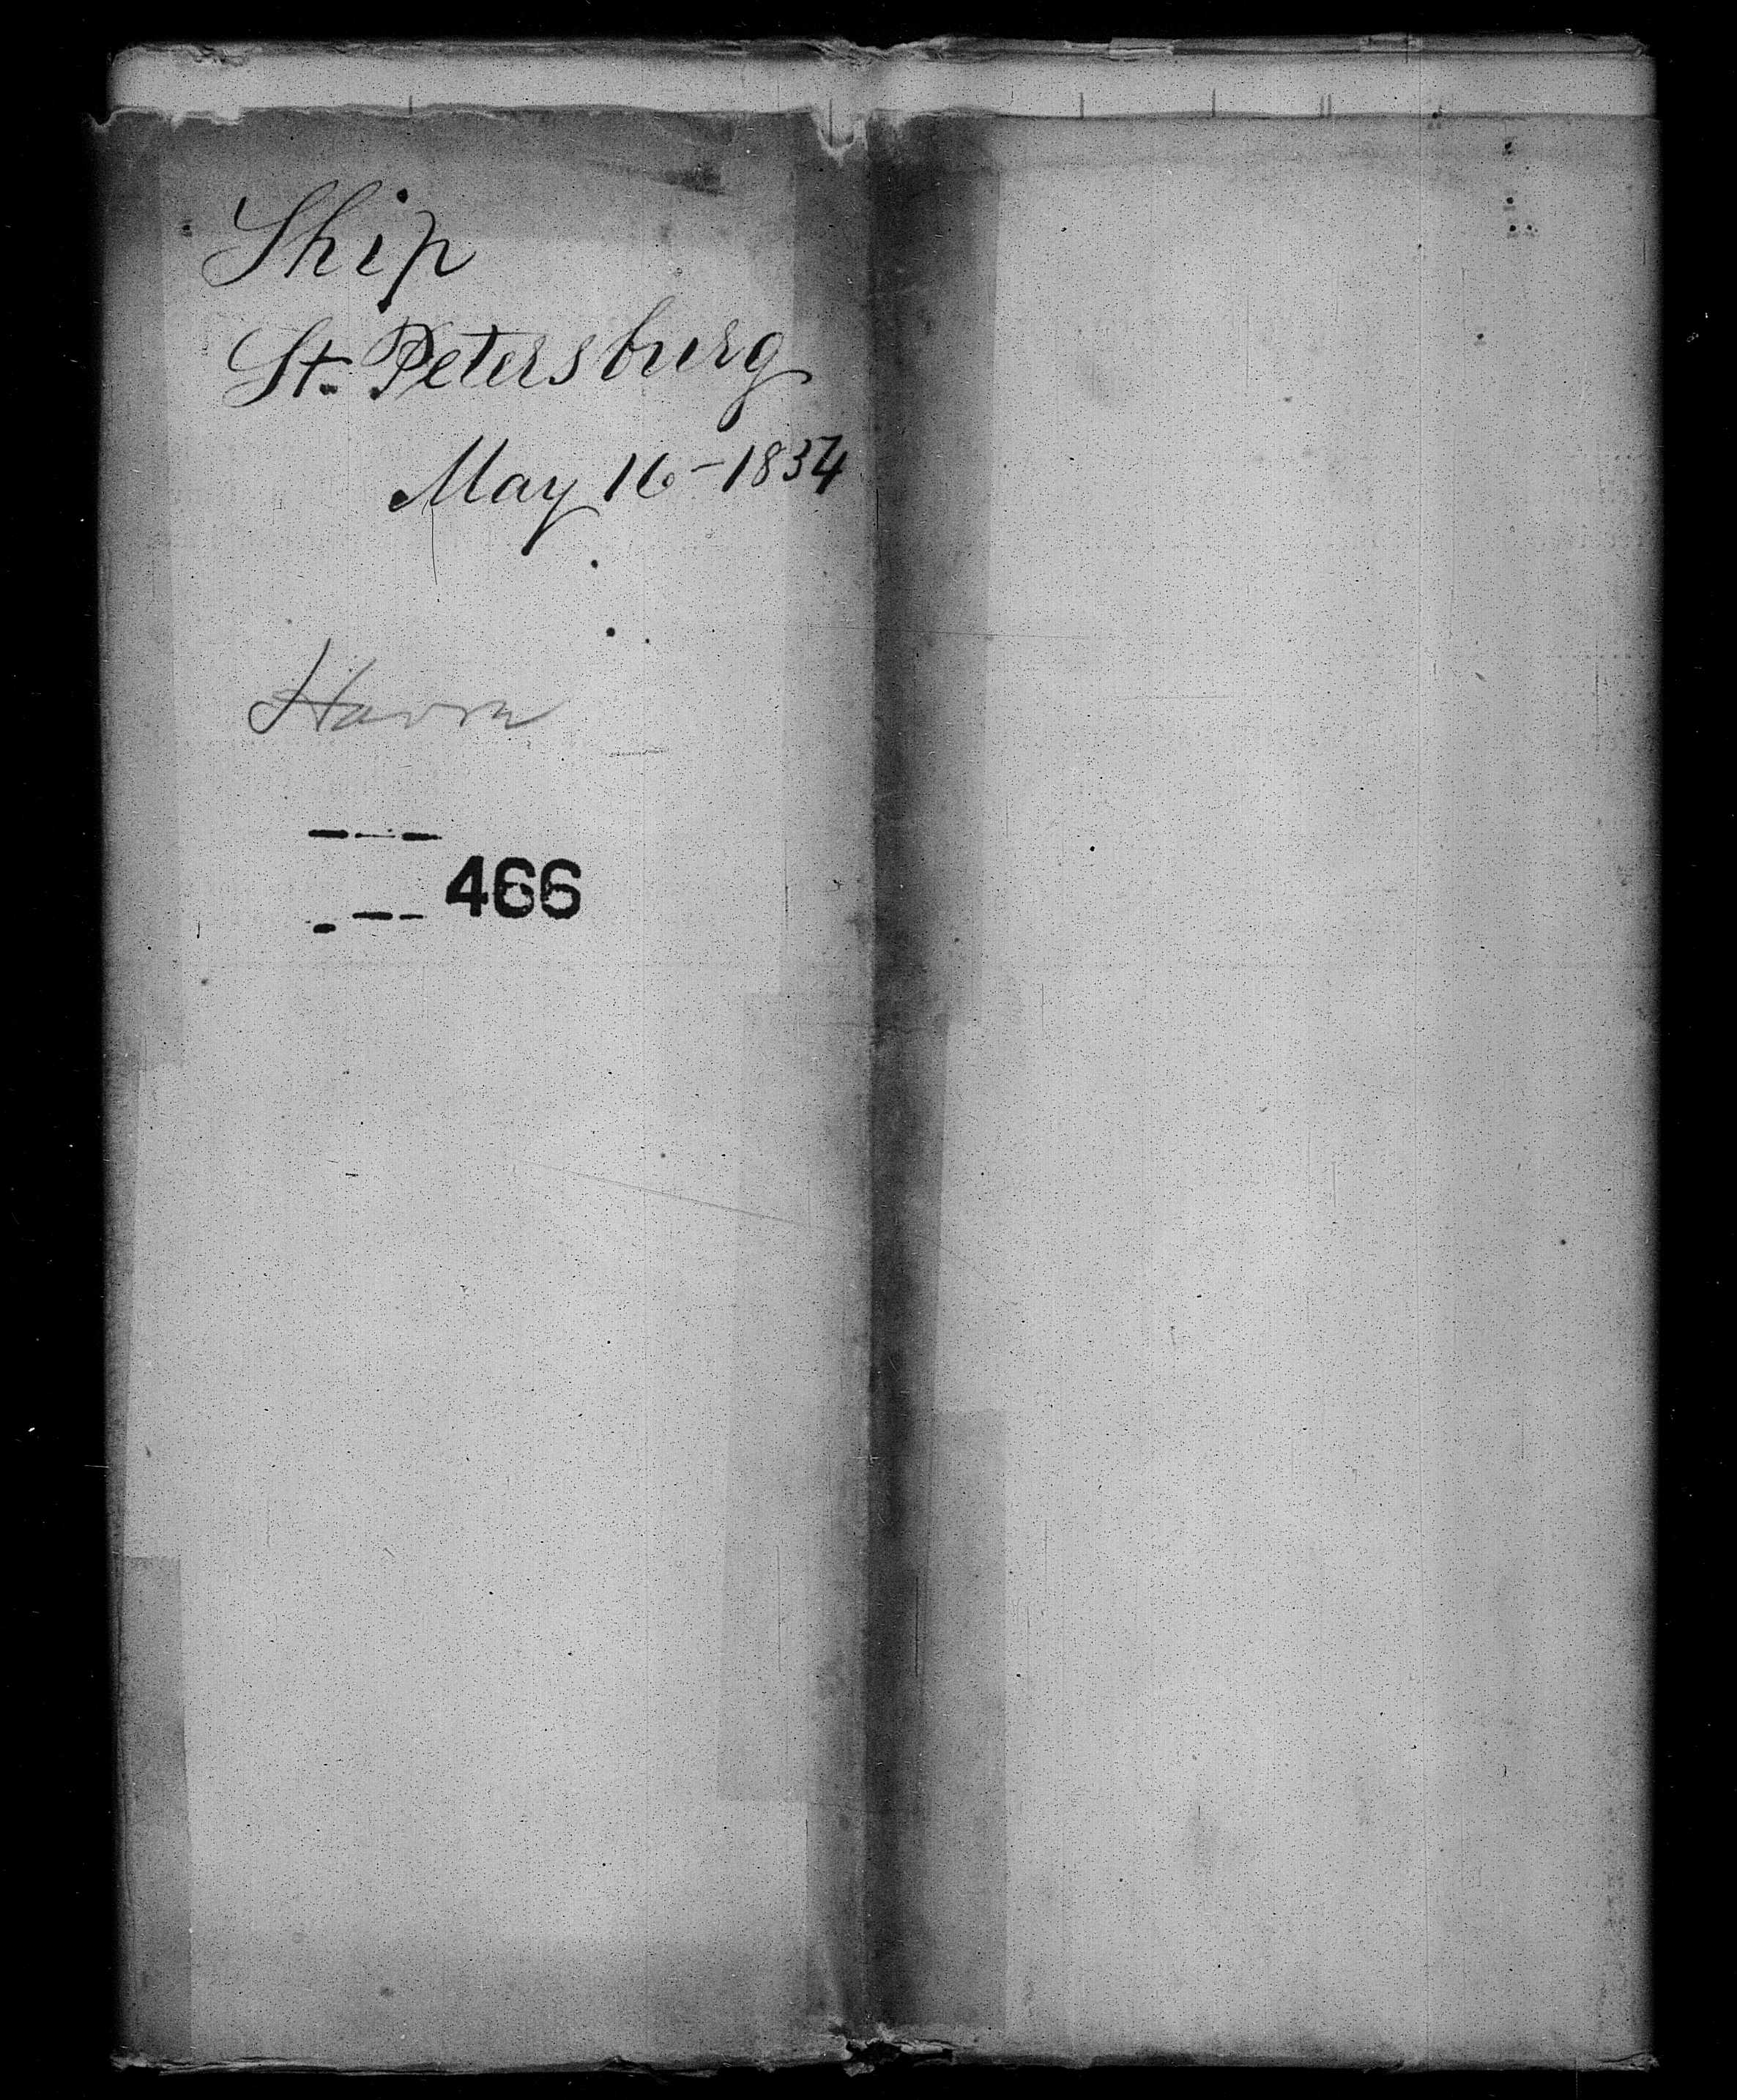 Ship
St. Petersburg
May 16-1834
Havre
466